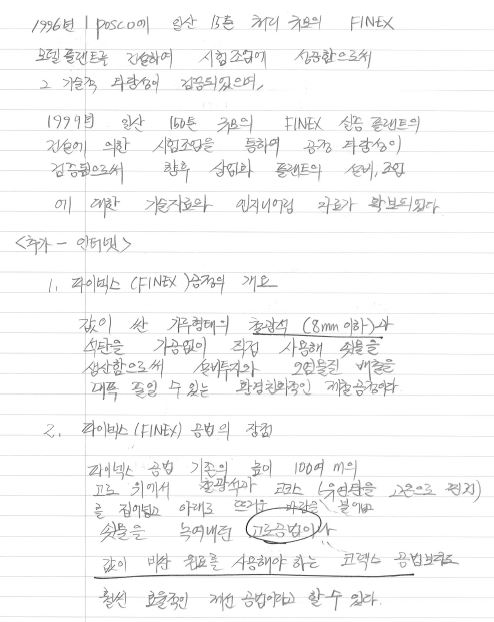 1996년 posco에 일산 15톤 처리 규모의 FINEX
모델 플랜트를 건설하여 시험조업에 성공함으로써
그 기술적 타당성이 검증되었으며,
1999년 일산 150톤 규모의 FINEX 실증 플랜트의
건설에 의한 시험조업을 통하여 공정 타당성이
검증됨으로써 향후 상업화 플랜트의 설비, 조업
에 대한 기술자료와 엔지니어링 자료가 확보되었다.
<추가 - 인터넷>
1. 파이넥스 (FINEX) 공정의 개요
값이 싼 가루형태의 철광석 (8mm 이하)과
석탄을 가공없이 직접 사용해 쇳물을
생산함으로써 설비투자와 오염물질 배출을
대폭 줄일 수 있는 환경친화적인 제철공정이다
2. 파이넥스(FINEX) 공법의 장점
파이넥스 공법 기존의 높이 100여 m의
고로 위에서 철광석과 코크스 (유연탄을 고온으로 찐것)
를 집어넣고 아래로 뜨거운 바람을 불어넣
쇳물을 녹여내던 고로공법이나
값이 비싼 원료를 사용해야 하는 코렉스 공법보다도
훨씬 효율적인 제선 공법이라고 할 수 있다.